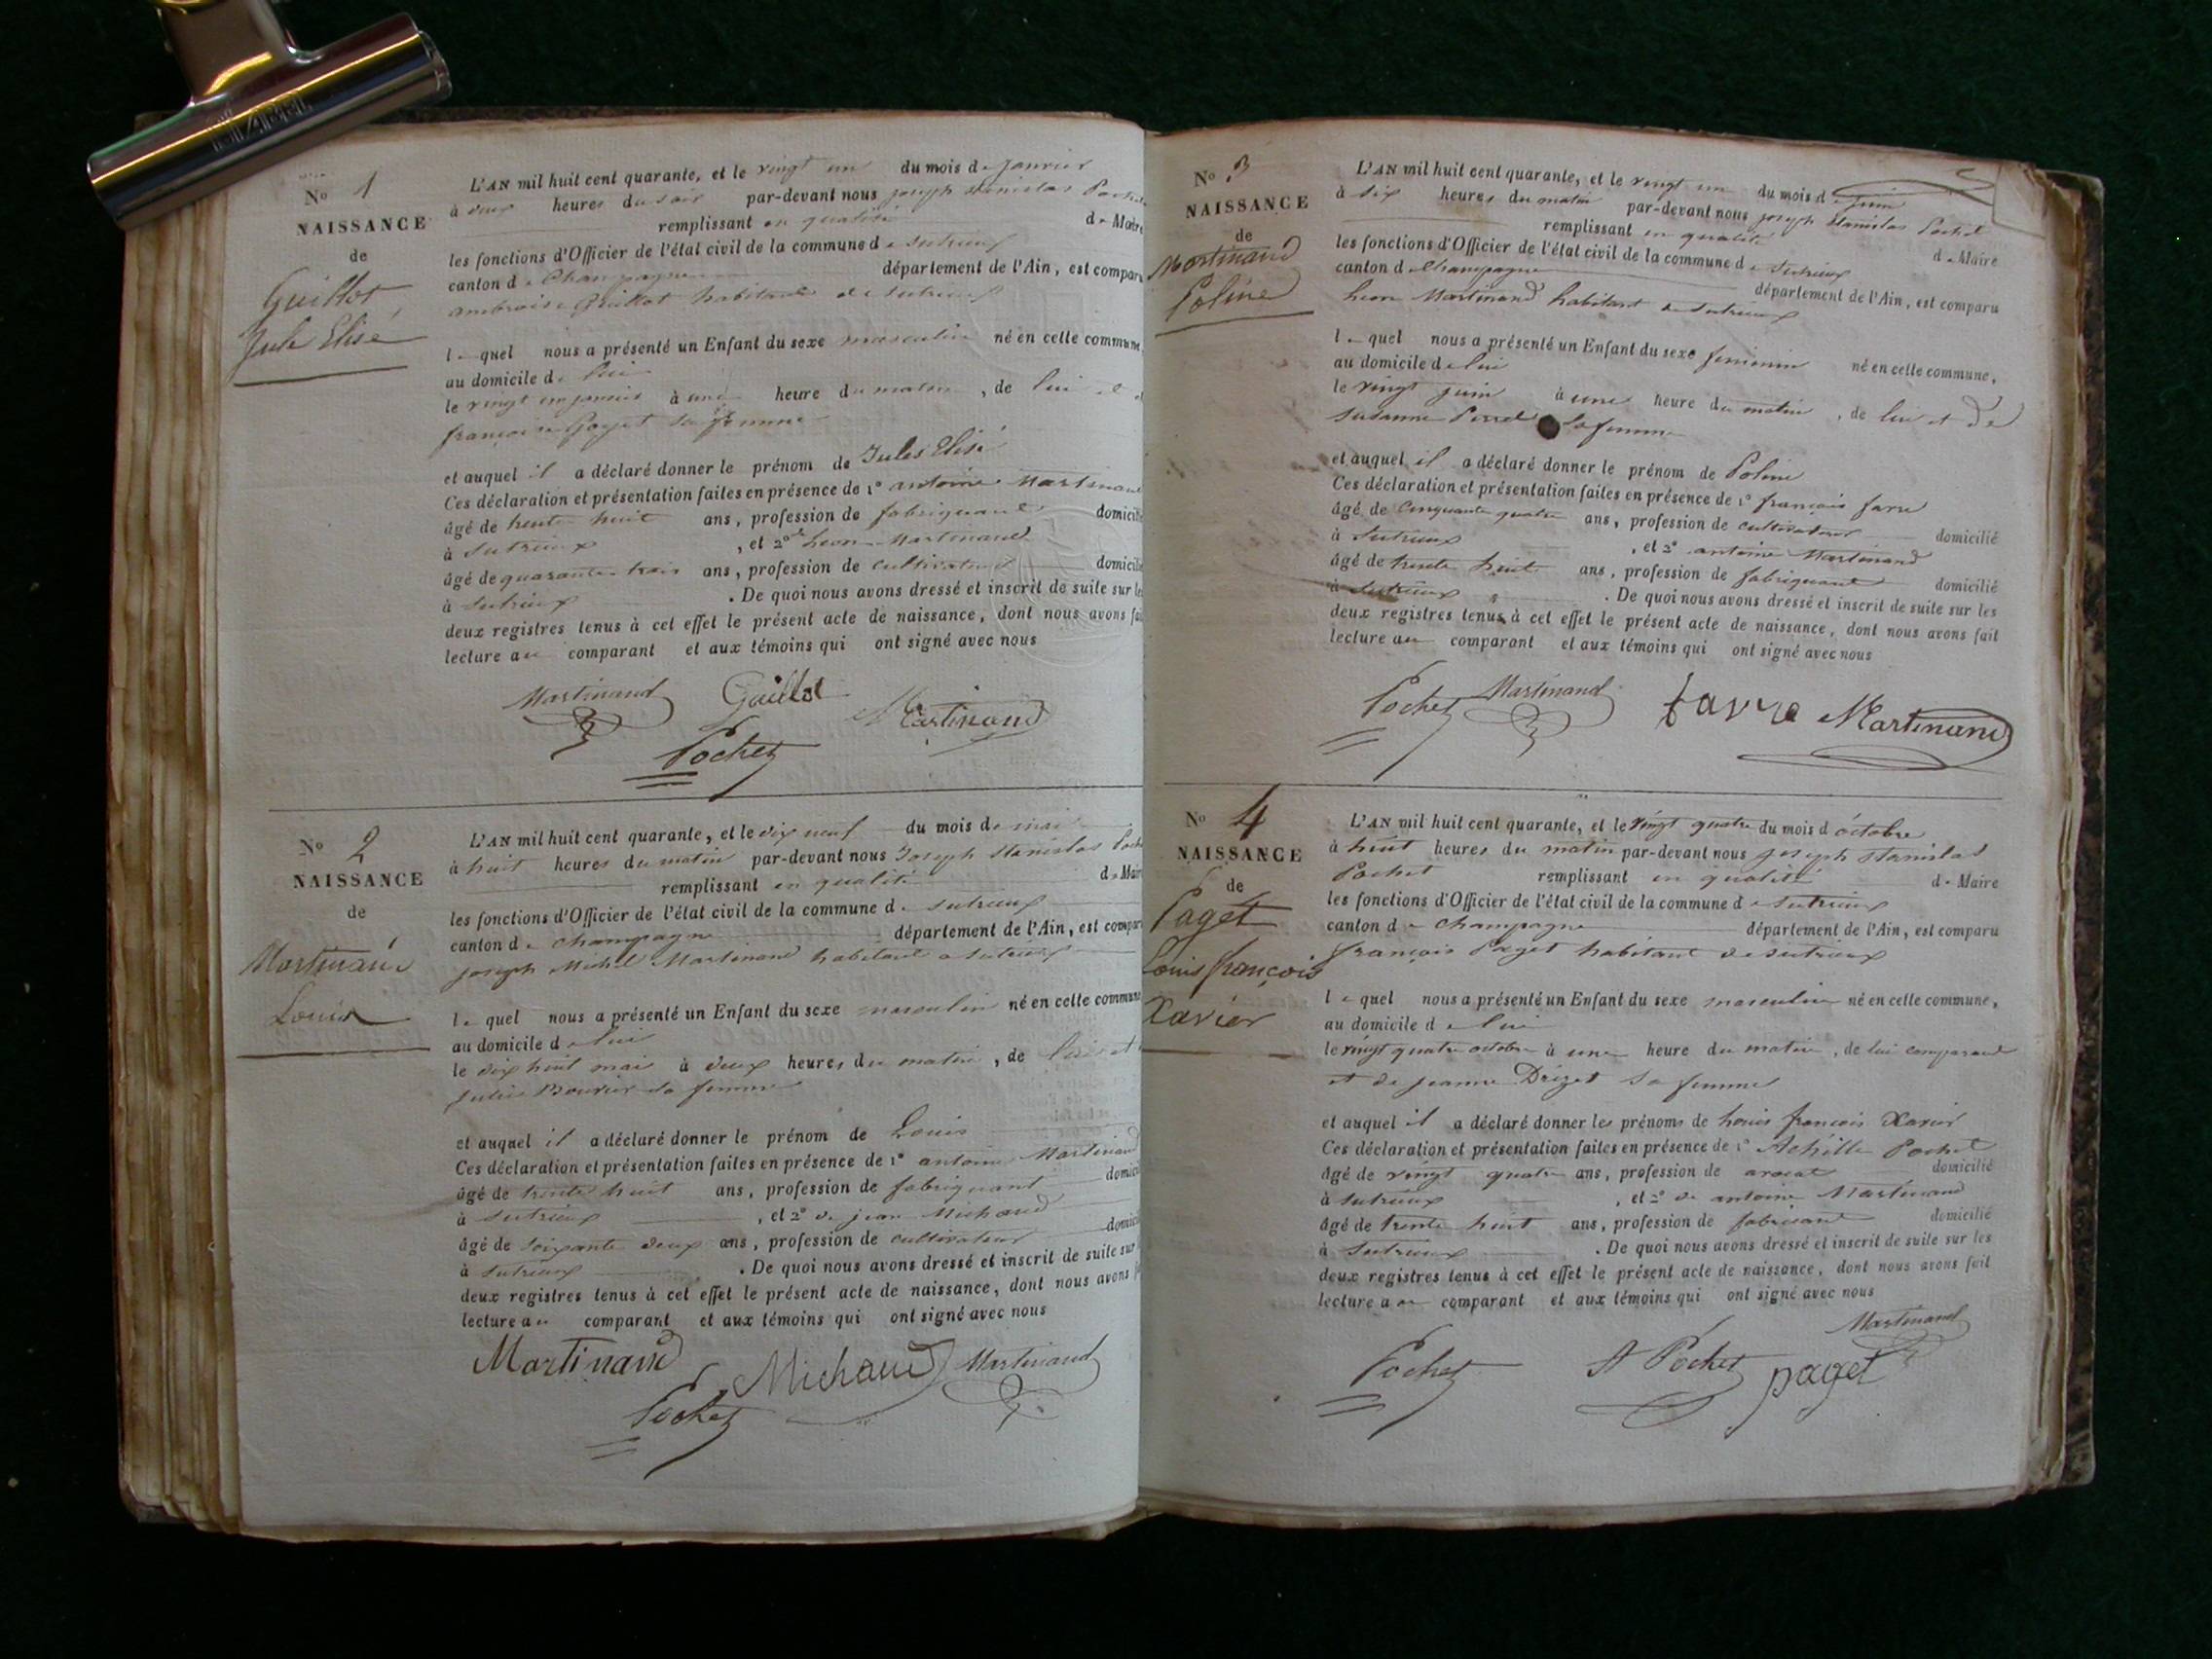 No 1
NAISSANCE
de
Guillot
Jule Elisé
L'AN mil huit cent quarante, et le vingt un du mois de janvier
à deux heures du soir par-devant nous joseph Stanislas
remplissant en qualité de Maire
les fonctions d'Officier de l'état civil de la commune de Sutrieux
canton de Champagne département de l'Ain, est comparu
ambroise Guillot habitant de Sutrieux
lequel nous a présenté un Enfant du sexe masculin né en celle commune,
au domicile de lui
le vingt un janvier à une heure du matin, de lui et
françoise Goyet sa femme
et auquel il a déclaré donner le prénom de Jules Elisé
Ces déclaration et présentation failes en présence de 1° antoine Martinand
âgé de trente huit ans, profession de fabriquant domicilié
à Sutrieux, et 2° de Leon Martinand
âgé de quarante trois ans, profession de cultivateur domicilié
à Sutrieux. De quoi nous avons dressé et inscrit de suite sur les
deux registres tenus à cet effet le présent acte de naissance, dont nous avons fait
lecture au comparant et aux témoins qui ont signé avec nous
Martinand Guillot Martinand
Pochet
No 2
NAISSANCE
de
Martinand
Louis
L'AN mil huit cent quarante, et le dix neuf du mois de mai
à huit heures du matin par-devant nous Joseph Stanislas
remplissant en qualité de Maire
les fonctions d'Officier de l'état civil de la commune de Sutrieux
canton de Champagne département de l'Ain, est comparu
joseph Michel Martinand habitant a Sutrieux
lequel nous a présenté un Enfant du sexe masculin né en celle commune
au domicile de lui
le dix huit mai à deux heures du matin, de lui et
Bouvier sa femme
et auquel il a déclaré donner le prénom de Louis
Ces déclaration et présentation failes en présence de 1° antoine Martinand
âgé de trente huit ans, profession de fabriquant
à Sutrieux, et 2° de jean Michaud
âgé de soixante deux ans, profession de cultivateur
à Sutrieux. De quoi nous avons dressé et inscrit de suite sur
deux registres tenus à cet effet le présent acte de naissance, dont nous avons
lecture au comparant et aux témoins qui ont signé avec nous
Martinand Michaud Martinand
Pochet
No 3
NAISSANCE
de
Martinand
Poline
L'AN mil huit cent quarante, et le vingt un du mois de juin
à six heures du matin par-devant nous joseph Stanislas Pochet
remplissant en qualité de Maire
les fonctions d'Officier de l'état civil de la commune de Sutrieux
canton de Champagne département de l'Ain, est comparu
Leon Martinand habitant de Sutrieux
lequel nous a présenté un Enfant du sexe feminin né en celle commune,
au domicile de lui
le vingt juin à une heure du matin, de lui et de
susanne sa femme
et auquel il a déclaré donner le prénom de Poline
Ces déclaration et présentation failes en présence de 1° françois favre
âgé de cinquante quatre ans, profession de cultivateur domicilié
à Sutrieux, et 2° antoine Martinand
âgé de trente huit ans, profession de fabriquant domicilié
à Sutrieux. De quoi nous avons dressé et inscrit de suite sur les
deux registres tenus à cet effet le présent acte de naissance, dont nous avons fait
lecture au comparant et aux témoins qui ont signé avec nous
Pochet Martinand favre Martinand
No 4
NAISSANCE
de
Paget
Louis françois
Xavier
L'AN mil huit cent quarante, et le vingt quatre du mois d'octobre
à huit heures du matin par-devant nous joseph Stanislas
Pochet remplissant en qualité de Maire
les fonctions d'Officier de l'état civil de la commune de Sutrieux
canton de Champagne département de l'Ain, est comparu
françois Paget habitant de Sutrieux
lequel nous a présenté un Enfant du sexe masculin né en celle commune,
au domicile de lui
le vingt quatre octobre à une heure du matin, de lui comparant
et de jeanne Drizet sa femme
et auquel il a déclaré donner les prénoms de Louis françois Xavier
Ces déclaration et présentation failes en présence de 1° Achille Pochet
âgé de vingt quatre ans, profession de avocat domicilié
à Sutrieux, et 2° de antoine Martinand
âgé de trente huit ans, profession de fabricant domicilié
à Sutrieux. De quoi nous avons dressé et inscrit de suite sur les
deux registres tenus à cet effet le présent acte de naissance, dont nous avons fait
lecture au comparant et aux témoins qui ont signé avec nous
Martinand
Pochet A Pochet paget